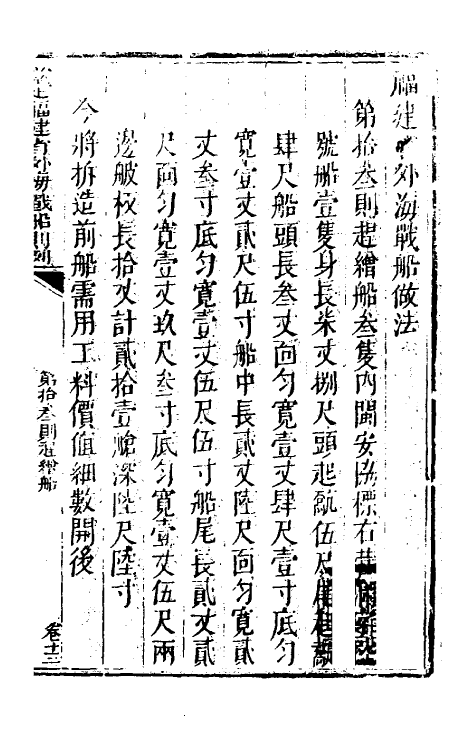 福建外海戰船做法
第拾叁則趕繒船叁隻內閩安協標右營
號船壹隻身長柒丈捌尺頭起𦩘伍尺
肆尺船頭長叁丈面勻寬壹丈肆尺壹寸底勻
寬壹丈貳尺伍寸船中長貳丈陸尺面勻寬貳
丈叁寸底勻寬壹丈伍尺伍寸船尾長貳丈貳
尺面勻寬壹丈玖尺叁寸底勻寬壹丈伍尺兩
邊艍板長拾丈計貳拾壹艙深陸尺陸寸
今將拆造前船需用工料價值細數開後
福建省外海戰船則例
第拾叁則趕繒船
卷十三